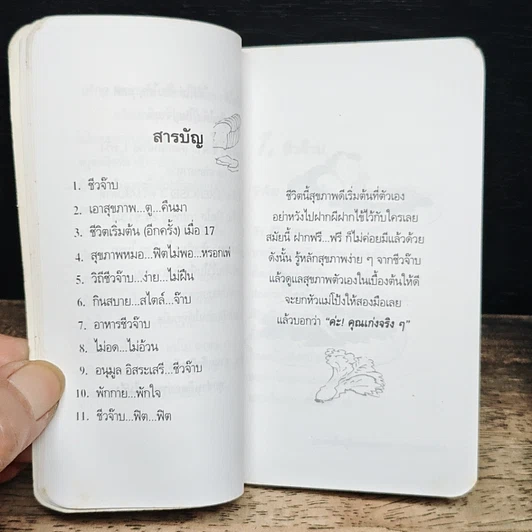 สารบัญ
1. ชีวจ๊าบ
2. เอาสุขภาพ...ตู...คืนมา
3. ชีวิตเริ่มต้น (อีกครั้ง) เมื่อ 17
4. สุขภาพหมอ...ฟิตไม่พอ...หรอกเพ่
5. วิถีชีวจ๊าบ...ง่าย...ไม่ฝืน
6. กินสบาย...สไตล์...จ๊าบ
7. อาหารชีวจ๊าบ
8. ไม่อด...ไม่อ้วน
9. อนุมูล อิสระเสรี...ชีวจ๊าบ
10. พักกาย...พักใจ
11. ชีวจ๊าบ...ฟิต...ฟิต
ชีวิตนี้สุขภาพดีเริ่มต้นที่ตัวเอง
อย่าหวังไปฝากผีฝากไข้ไว้กับใครเลย
สมัยนี้ ฝากฟรี...ฟรี ก็ไม่ค่อยมีแล้วด้วย
ดังนั้น รู้หลักสุขภาพง่าย ๆ จากชีวจ๊าบ
แล้วดูแลสุขภาพตัวเองในเบื้องต้นให้ดี
จะยกหัวแม่โป้งให้สองมือเลย
แล้วบอกว่า "ค่ะ! คุณเก่งจริง ๆ"